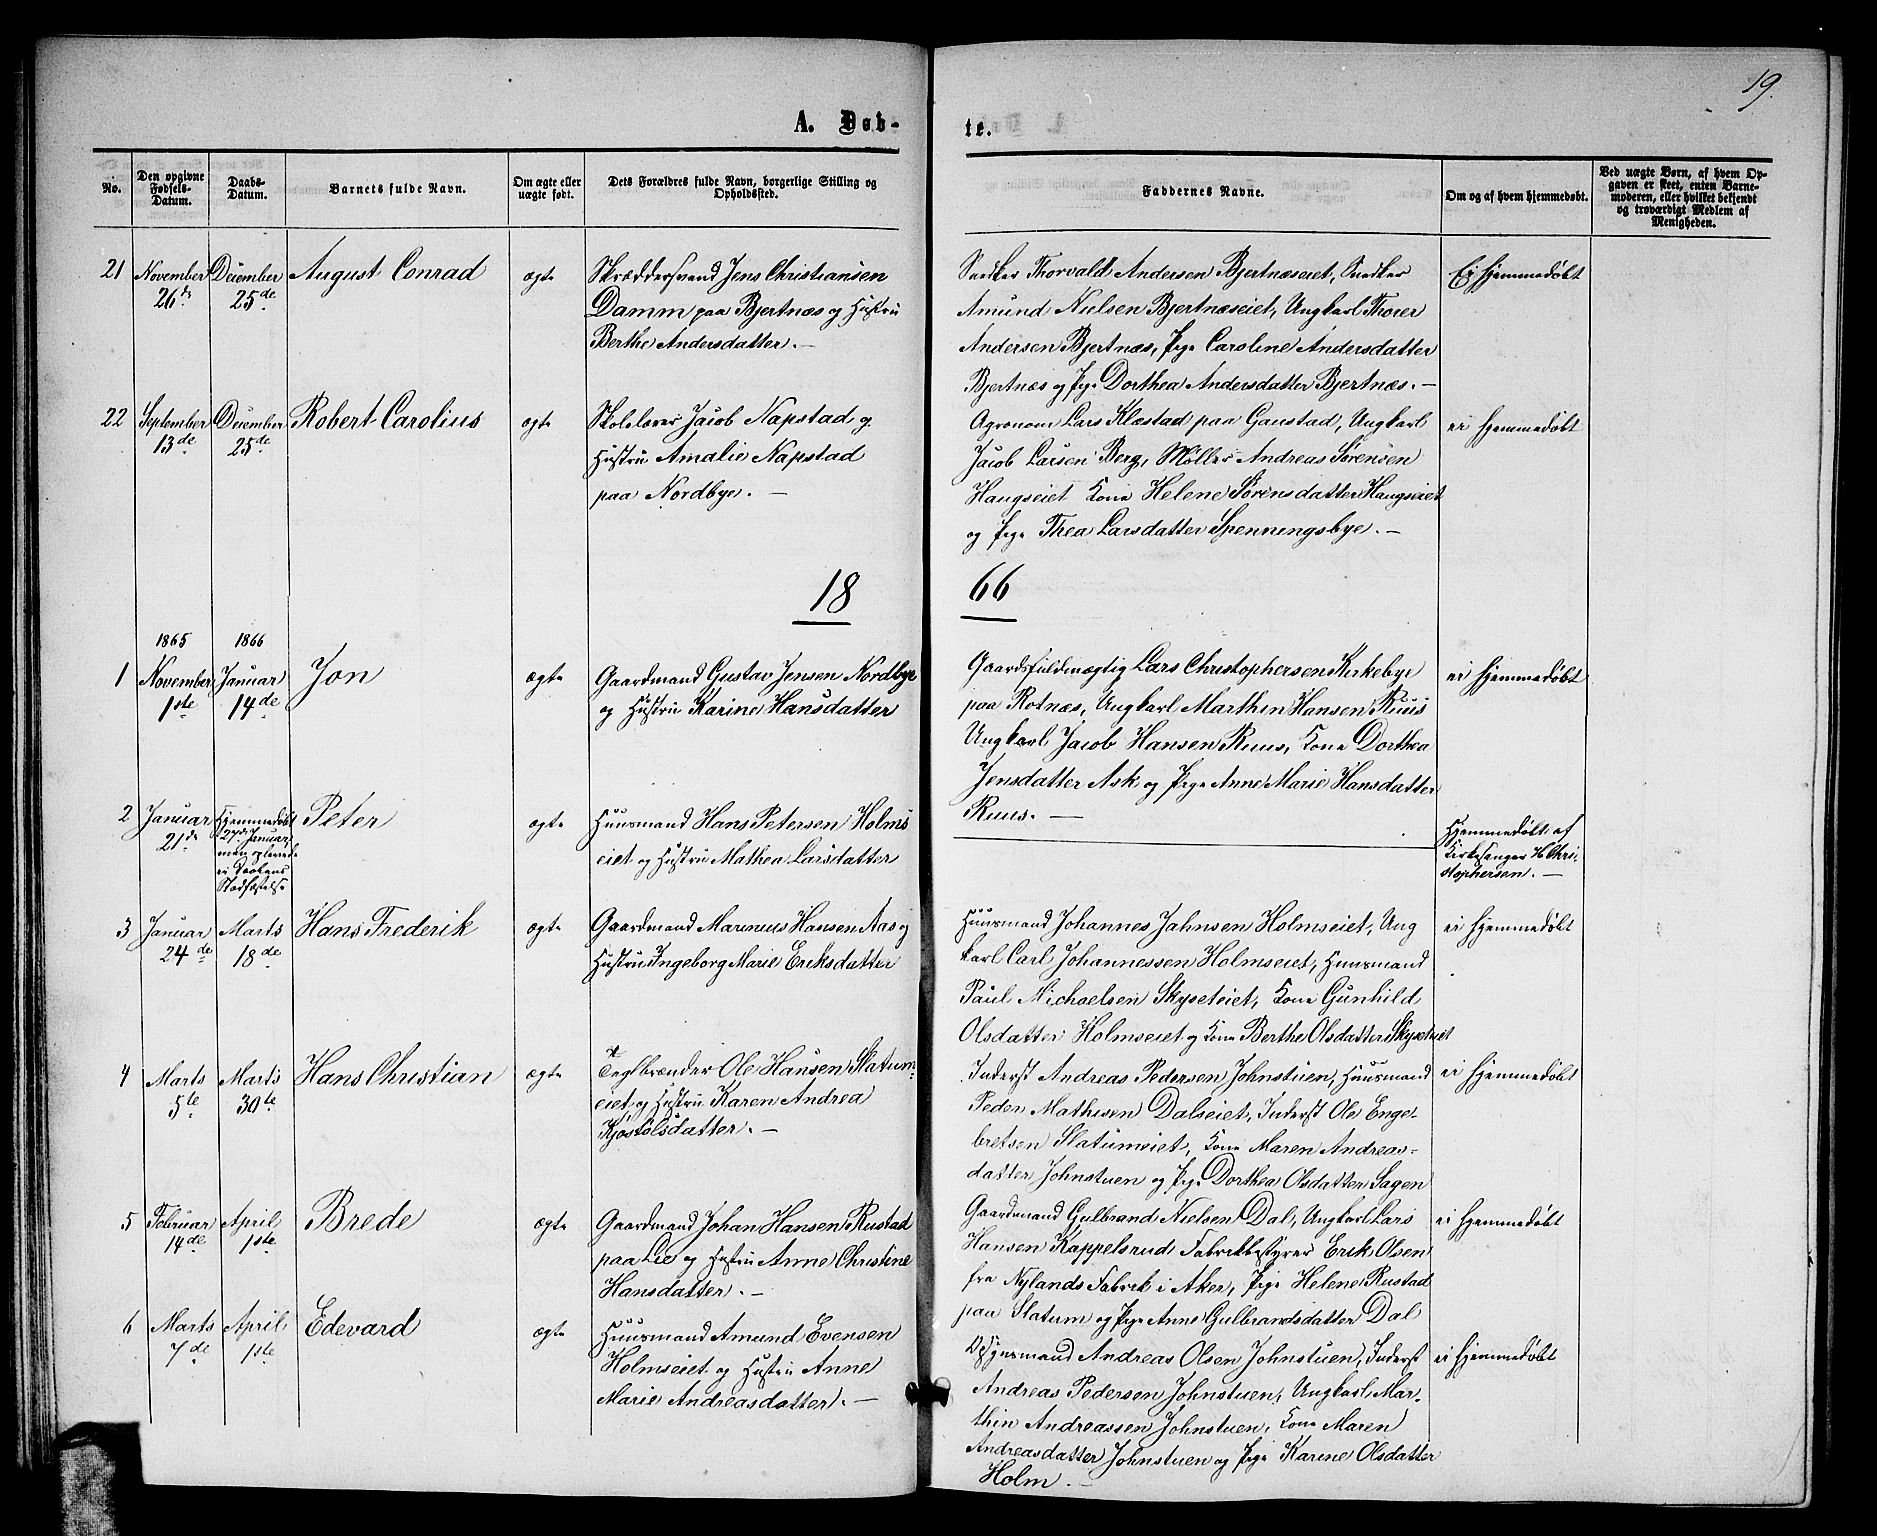 19.
A. Døb-
te.
No.
Den opgivne Fødsels-Datum.
Daabs-Datum.
Barnets fulde Navn.
Om ægte eller uægte født.
Dets Forældres fulde Navn, borgerlige Stilling og Opholdssted.
Faddernes Navne.
Om og af hvem hjemmedøbt.
Ved uægte Børn, af hvem Opgaven er skeet, enten Barnemoderen, eller hvilket bekjendt og troværdigt Medlem af Menigheden.
21 November 26de December 25de August Conrad ægte
Skræddersvend Jens Christiansen
Damm paa Bjertnæs og Hustru
Berthe Andersdatter. —
Snedker Thorvald Andersen Bjertnæseiet, Snedker
Amund Nielsen Bjertnæseiet, Ungkarl Thorer
Andersen Bjertnæs, Pige Caroline Andersdatter
Bjertnæs og Pige Dorthea Andersdatter Bjertnæs. —
Ei hjemmedøbt
22 September 13de December 25de Robert Carolius ægte
Skolelærer Jacob Napstad og
Hustru Amalie Napstad
paa Nordbye. —
Agronom Lars Kløstad paa Gaustad, Ungkarl
Jacob Larsen Berg, Møller Andreas Sørensen
Haugseiet Kone Helene Sørensdatter Haugseiet
og Pige Thea Larsdatter Spenningsbye. —
ei hjemmedøbt
18 66
1865 1866
1 November 1ste Januar 14de Jon ægte
Gaardmand Gustav Jensen Nordbye
og Hustru Karine Hansdatter
Gaardsfuldmægtig Lars Christophersen Kirkebye
paa Rotnæs, Ungkarl Marthin Hansen Ruus
Ungkarl Jacob Hansen Ruus, Kone Dorthea
Jensdatter Ask og Pige Anne Marie Hansdatter
Ruus. —
ei hjemmedøbt
2 Januar 21de
Hjemmedøbt
27de Januar,
men oplevede
ei Daabens
Stadfæstelse
Peter ægte
Huusmand Hans Petersen Holms
eiet og Hustru Mathea Larsdatter
Hjemmedøbt af
Kirkesanger H Chri-
stophersen. —
3 Januar 24de Marts 18de Hans Frederik ægte
Gaardmand Marinius Hansen Aas og
Hustru Ingeborg Marie Eriksdatter
Huusmand Johannes Jahnsen Holmseiet, Ung
karl Carl Johannessen Holmseiet, Huusmand
Paul Michaelsen Skyseteiet, Kone Gunhild
Olsdatter Holmseiet og Kone Berthe Olsdatter Skyseteiet
ei hjemmedøbt
4 Marts 5te Marts 30te Hans Christian ægte
Teglbrænder Ole Hansen Slatum-
eiet, og Hustru Karen Andrea
Kjøstolsdatter. —
Inderst Andreas Pedersen Johnstuen, Huusmand
Peder Mathisen Dalseiet, Inderst Ole Enge
bretsen Slatumeiet, Kone Maren Andreas-
datter Johnstuen og Pige Dorthea Olsdatter Sagen
ei hjemmedøbt
5 Februar 14de April 1ste Brede ægte
Gaardmand Johan Hansen Rustad
paa Lie og Hustru Anne Christine
Hansdatter. —
Gaardmand Gulbrand Nielsen Dal, Ungkarl Lars
Hansen Kappelsrud Fabrikbestyrer Erik Olsen
fra Nylands Fabrik i Aker, Pige Helene Rustad
paa Slatum og Pige Anne Gulbrandsdatter Dal
ei hjemmedøbt
6 Marts 7de April 1ste Edevard ægte
Huusmand Amund Evensen
Holmseiet og Hustru Anne
Marie Andreasdatter. —
Huusmand Andreas Olsen Johnstuen, Inderst
Andreas Pedersen Johnstuen, Ungkarl Mar-
thin Andreassen Johnstuen, Kone Maren
Andreasdatter Johnstuen og Pige Karine Olsdatter
Holm. —
ei hjemmedøbt